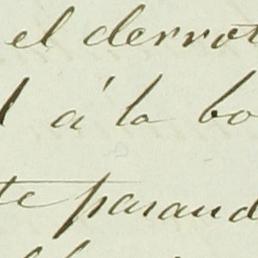 el derrot
á la bo
te parand